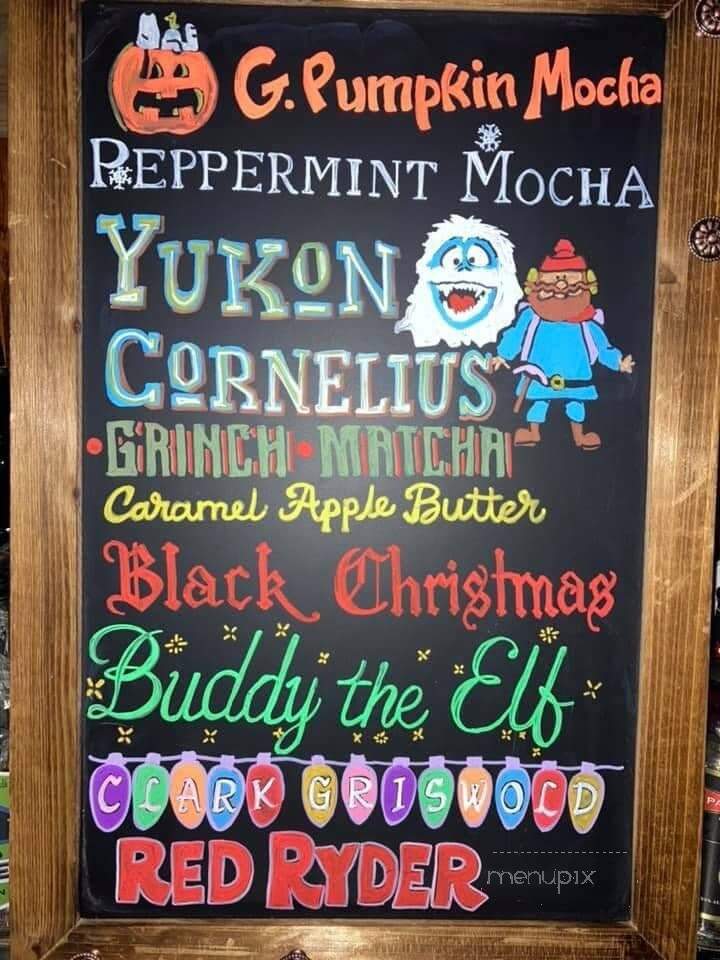 G. Pumpkin Mocha
PEPPERMINT MOCHA
YUKON
CORNELIUS
• GRINCH • MATCHA
Caramel Apple Butter
Black Christmas
Buddy the Elf
CLARK GRISWOLD
RED RYDER
menupix